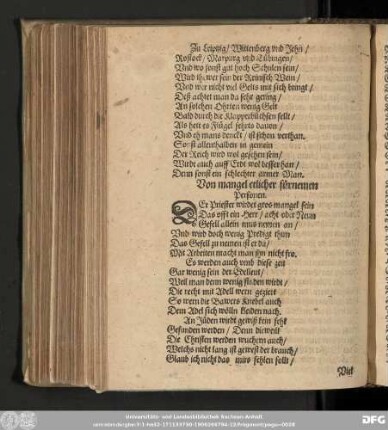 Zu Leipzig / Wittenberg vnd Jehn /
Rostock / Marpurg vnd Tübingen /
Vnd wo sonst gut hoch Schulen sein /
Wird thewer sein der Reinisch Wein /
Vnd wer nicht viel Gelts mit sich bringt /
Deß achtet man da sehr gering /
An solchen Ohrten wenig Gelt
Bald durch die Klopperbüchsen fellt /
Als hett es Flügel zeucts davon /
Vnd eh mans denckt / ist schon verthan.
Sonst allenthalben in gemein
Der Reich wird wol gesehen sein /
Wirdt auch auff Erdt wol besser han /
Denn sonst ein schlechter armer Man.
Von mangel etlicher fürnemen
Personen.
DEr Priester wirdet gros mangel sein
Das offt ein Herr / acht oder Neun
Gesell allein mus nemen an /
Vnd wird doch wenig Predigt thun
Das Gesell zu nennen ist er da /
Mit Arbeiten macht man jhn nicht fro.
Es werden auch vmb diese zeit
Gar wenig sein der Edelleut /
Weil man denn wenig finden wirdt /
Die recht mit Adell wern geziert
So wern die Bawers Knebel auch
Dem Adel sich wölln Eoden nach.
An Jüden wirdt gewiß kein fehl
Gefunden werden / Denn dieweil
Die Christen werden wuchern auch /
Welchs nicht lang ist gewest der brauch /
Glaub ich nicht das mirs fehlen sollt /
Wiet
Universitäts- und Landesbibliothek Sachsen-Anhalt